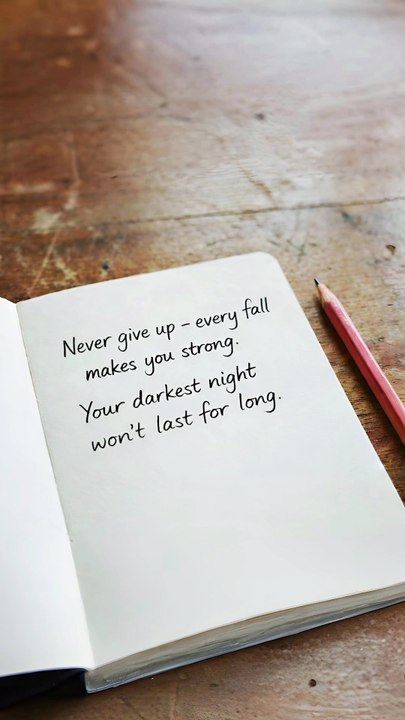 Never give up – every fall
makes you strong.
Your darkest night
won't last for long.